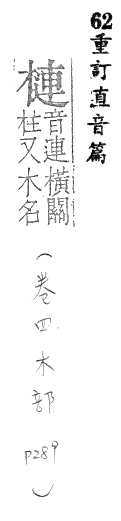 62重訂直音篇
槤
音連橫關
柱又木名
（卷四木部 p289）